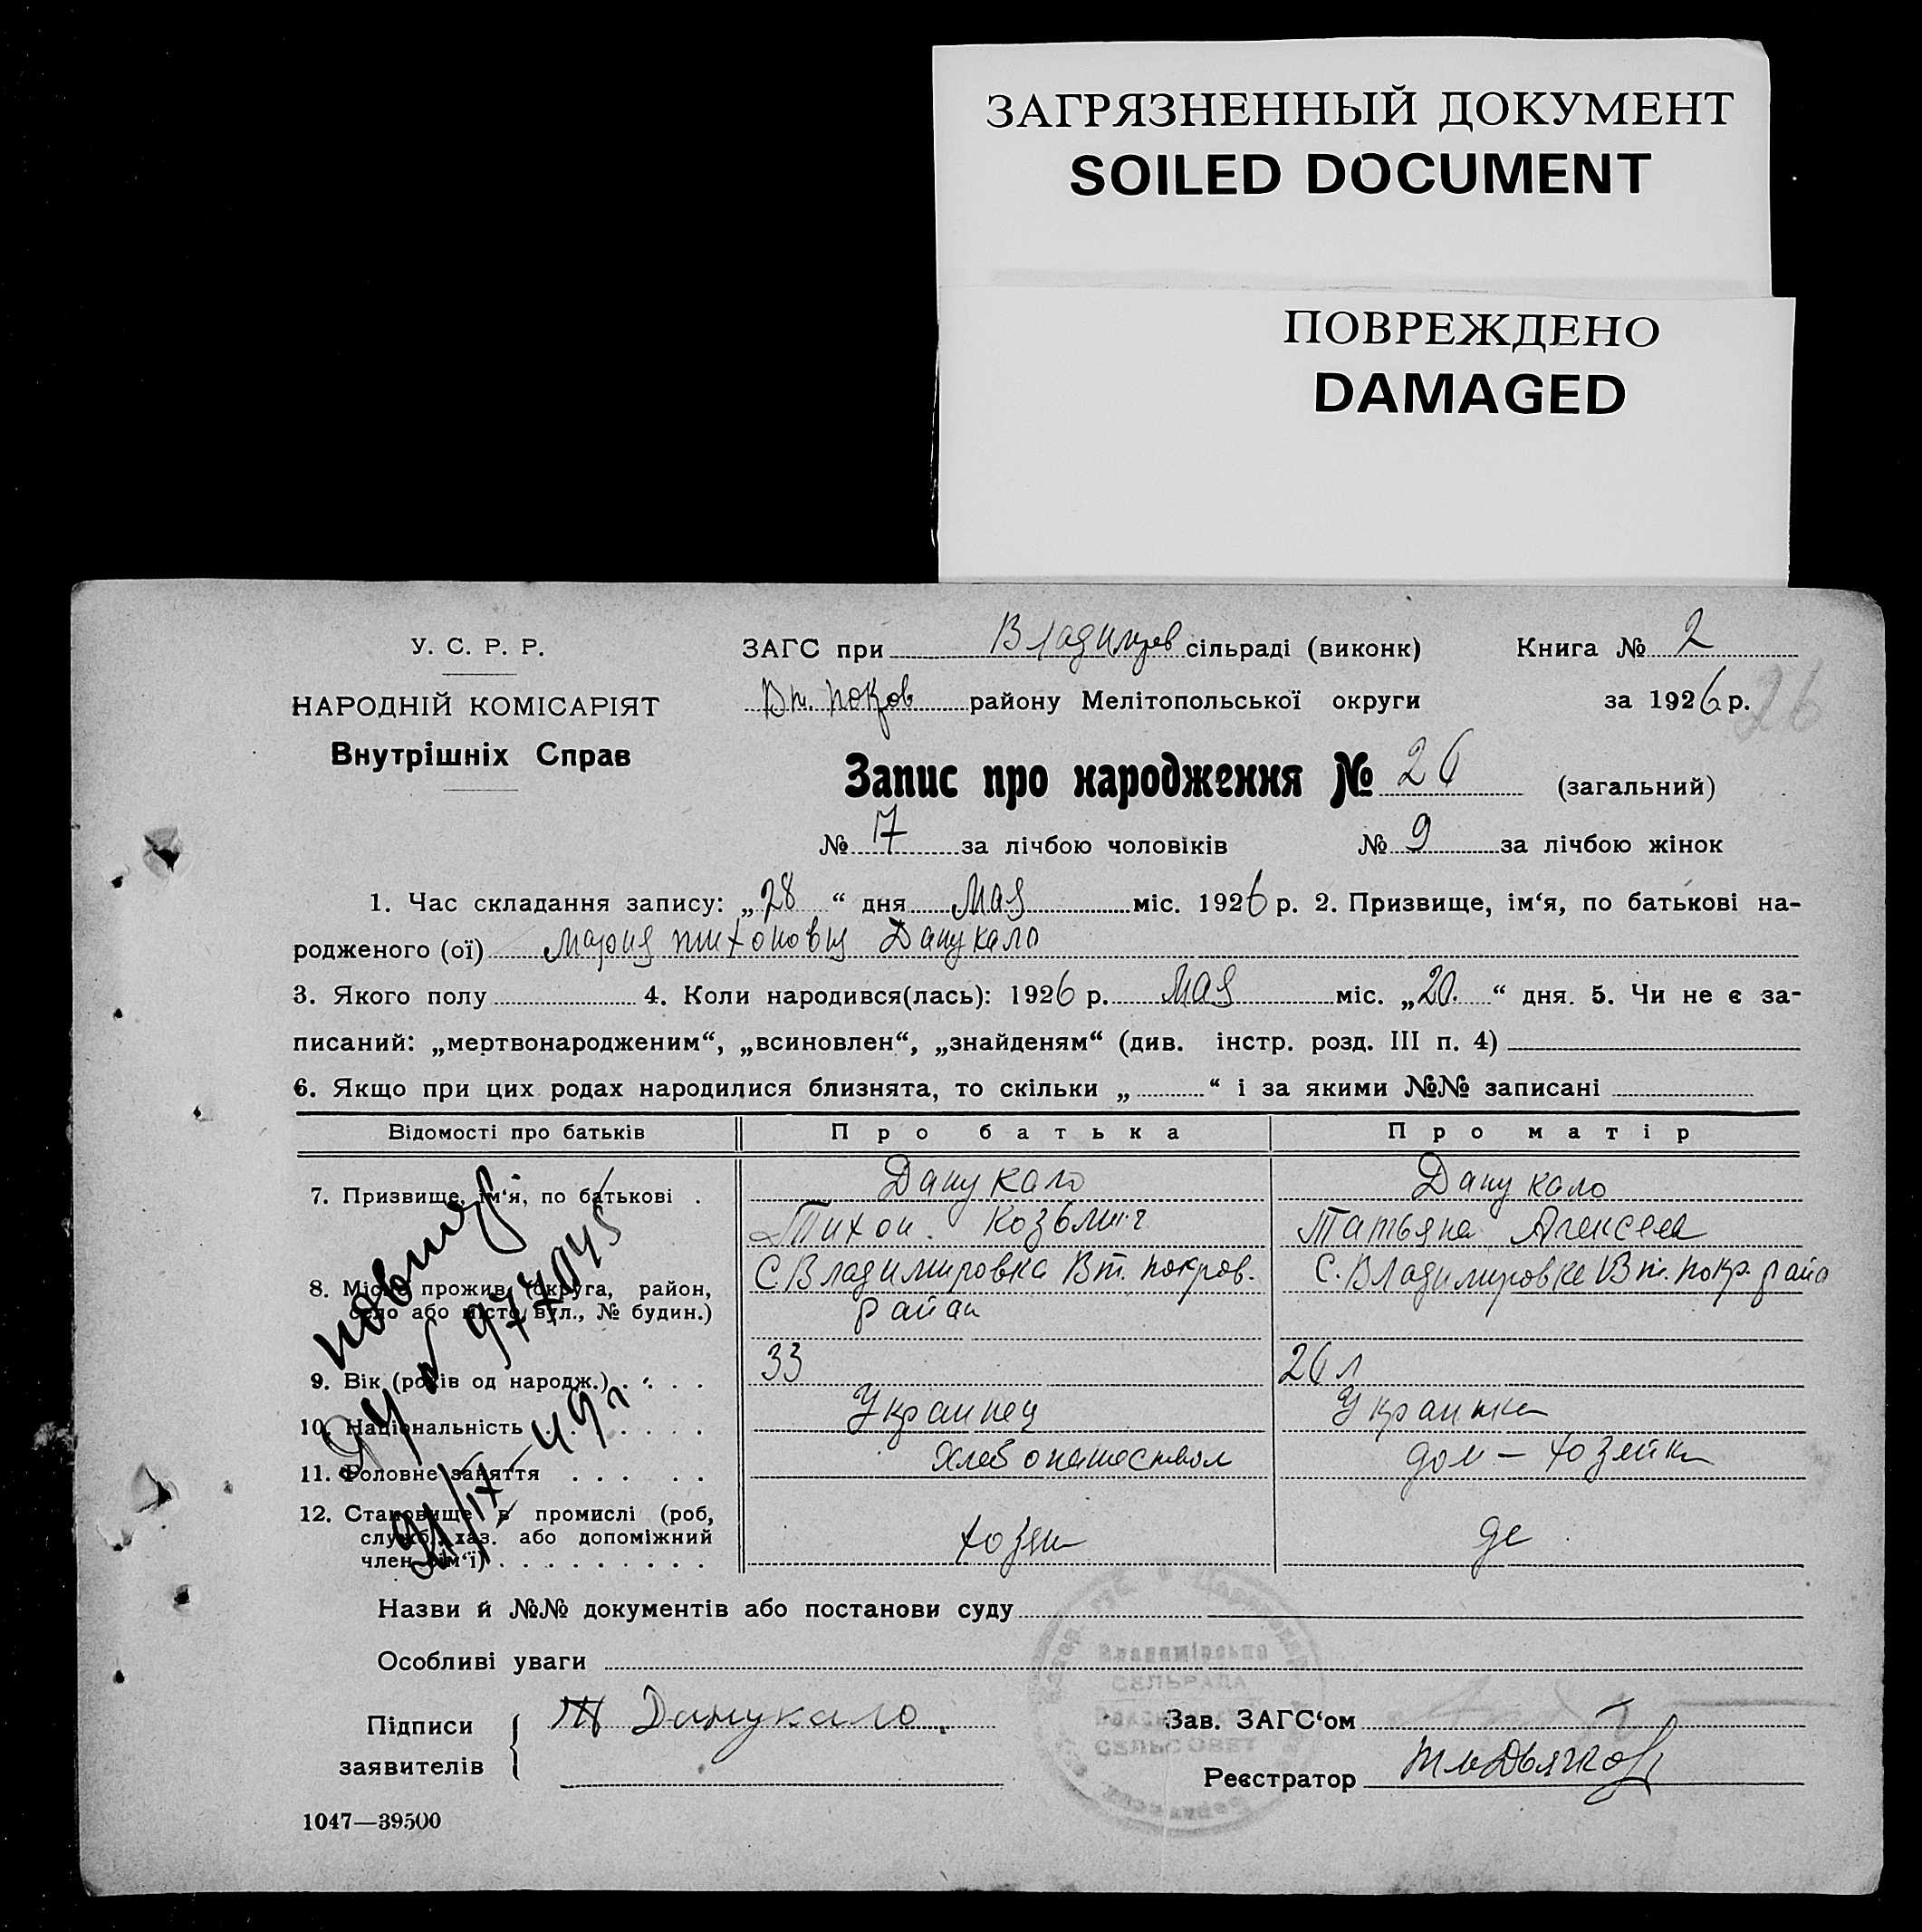 ЗАГРЯЗНЕННЫЙ ДОКУМЕНТ
SOILED DOCUMENT
ПОВРЕЖДЕНО
DAMAGED
У. С. Р. Р.
НАРОДНІЙ КОМІСАРІЯТ
Внутрішніх Справ
ЗАГС при Владимров сільраді (виконк) Книга № 2
Вт. покров району Мелітопольської округи за 1926 р. 26
Запис про народження № 26 (загальний)
№ 17 за лічбою чоловіків № 9 за лічбою жінок
1. Час складання запису: „28“ дня Мая міс. 1926 р. 2. Призвище, ім‘я, по батькові на-
родженого (ої) Мария тихоновна Данукало
3. Якого полу 4. Коли народився(лась): 1926 р. Мая міс. „20.“ дня. 5. Чи не є за-
писаний: „мертвонародженим“, „всиновлен“, „знайденям“ (див. інстр. розд. III п. 4)
6. Якщо при цих родах народилися близнята, то скільки „ “ і за якими №№ записані
Відомості про батьків Про батька Про матір
7. Призвище, ім‘я, по батькові . Данукало Данукало
Тихон. Козьмич Татьяна Алексеев
8. Місце прожив. (округа, район, село або місто, вул., № будин.) С. Владимировка Вт. покров. район С. Владимировка Вт. покр. райо
9. Вік (років од народж.) . . . . 33 26 л
10. Національність . . . . . Украинец Украинка
11. Головне заняття . . . . . Хлебопашество дом – хозяйка
12. Становище в промислі (роб, службов., хаз. або допоміжний член сім‘ї) . . . . . . . . . хозяин
повтор
№ 977045
21/IX 49 г
Назви й №№ документів або постанови суду
Особливі уваги
Підписи заявителів Т Данукало.
Зав. ЗАГС‘ом
Реєстратор
СЕЛЬРАДА
СЕЛЬСОВЕТ
1047—39500